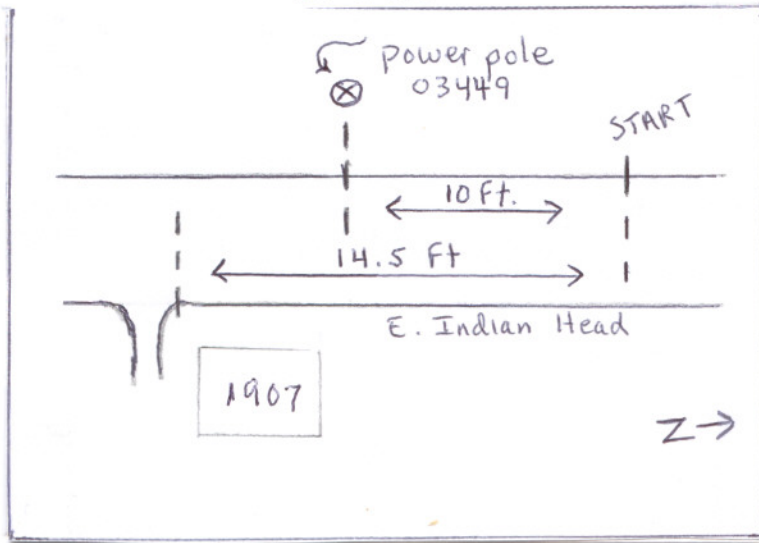 power pole
03449
START
10 Ft.
14.5 Ft
E. Indian Head
1907
N